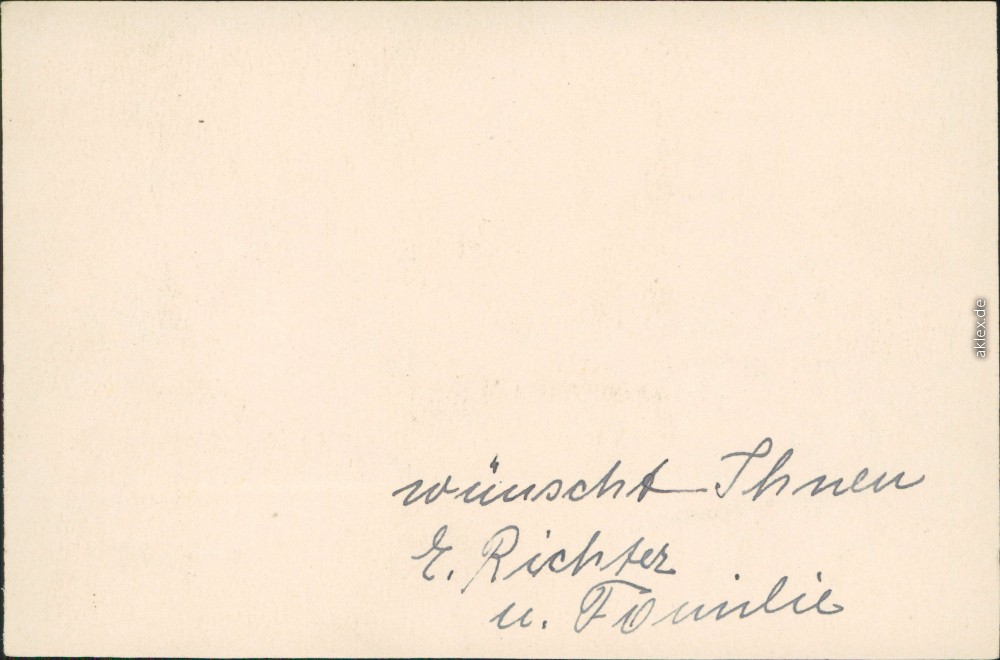 wünscht Ihnen
E. Richter
u. Familie
aklex.de